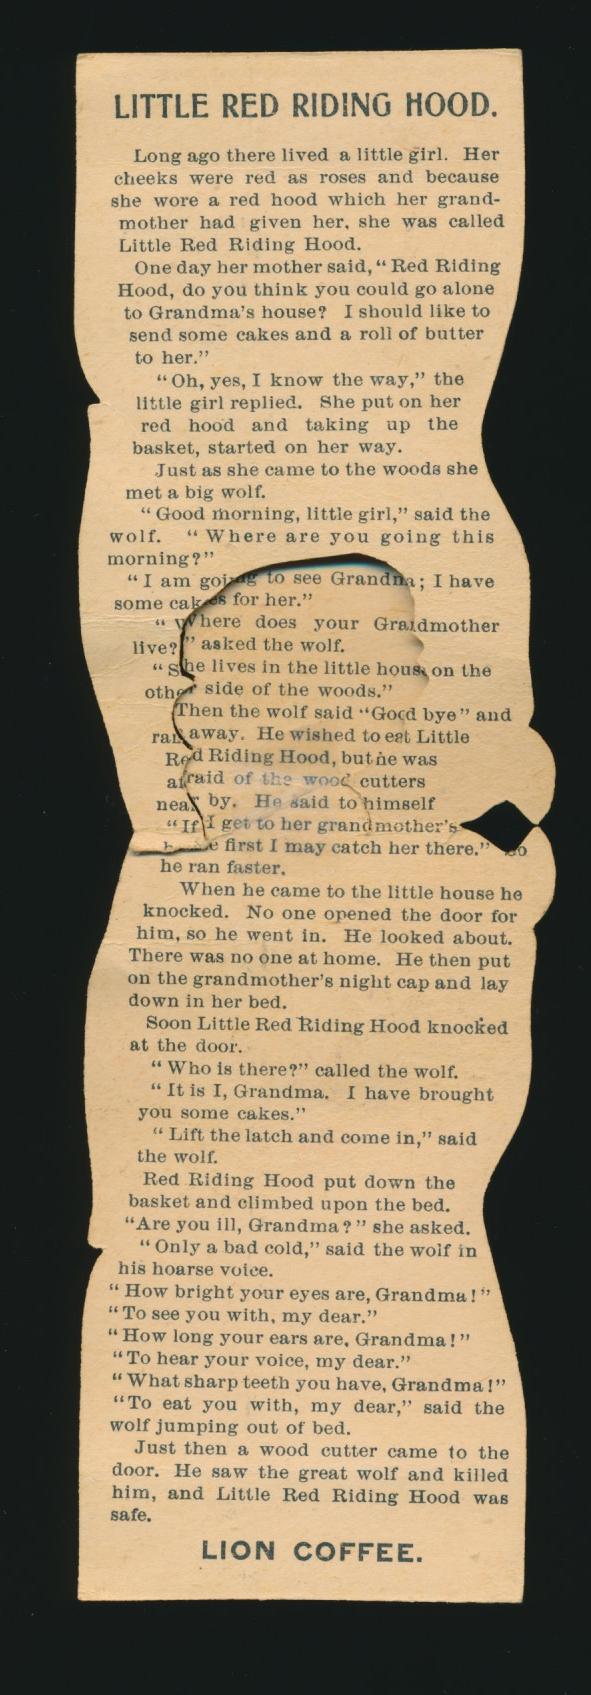 LITTLE RED RIDING HOOD.
Long ago there lived a little girl. Her
cheeks were red as roses and because
she wore a red hood which her grand-
mother had given her, she was called
Little Red Riding Hood.
One day her mother said, “Red Riding
Hood, do you think you could go alone
to Grandma’s house? I should like to
send some cakes and a roll of butter
to her.”
“Oh, yes, I know the way,” the
little girl replied. She put on her
red hood and taking up the
basket, started on her way.
Just as she came to the woods she
met a big wolf.
“Good morning, little girl,” said the
wolf. “Where are you going this
morning?”
“I am going to see Grandma; I have
some cakes for her.”
“Where does your Grandmother
live?” asked the wolf.
“She lives in the little house on the
other side of the woods.”
Then the wolf said “Good bye” and
ran away. He wished to eat Little
Red Riding Hood, but he was
afraid of the wood cutters
near by. He said to himself
“If I get to her grandmother’s
first I may catch her there.” So
he ran faster.
When he came to the little house he
knocked. No one opened the door for
him, so he went in. He looked about.
There was no one at home. He then put
on the grandmother’s night cap and lay
down in her bed.
Soon Little Red Riding Hood knocked
at the door.
“Who is there?” called the wolf.
“It is I, Grandma. I have brought
you some cakes.”
“Lift the latch and come in,” said
the wolf.
Red Riding Hood put down the
basket and climbed upon the bed.
“Are you ill, Grandma?” she asked.
“Only a bad cold,” said the wolf in
his hoarse voice.
“How bright your eyes are, Grandma!”
“To see you with, my dear.”
“How long your ears are, Grandma!”
“To hear your voice, my dear.”
“What sharp teeth you have, Grandma!”
“To eat you with, my dear,” said the
wolf jumping out of bed.
Just then a wood cutter came to the
door. He saw the great wolf and killed
him, and Little Red Riding Hood was
safe.
LION COFFEE.